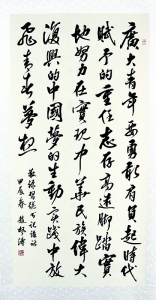 廣大青年要勇敢肩負起時代
賦予的重任志存高遠腳踏實
地努力在實現中華民族偉大
復興的中國夢的生動實踐中放
飛青春夢想
甲辰春